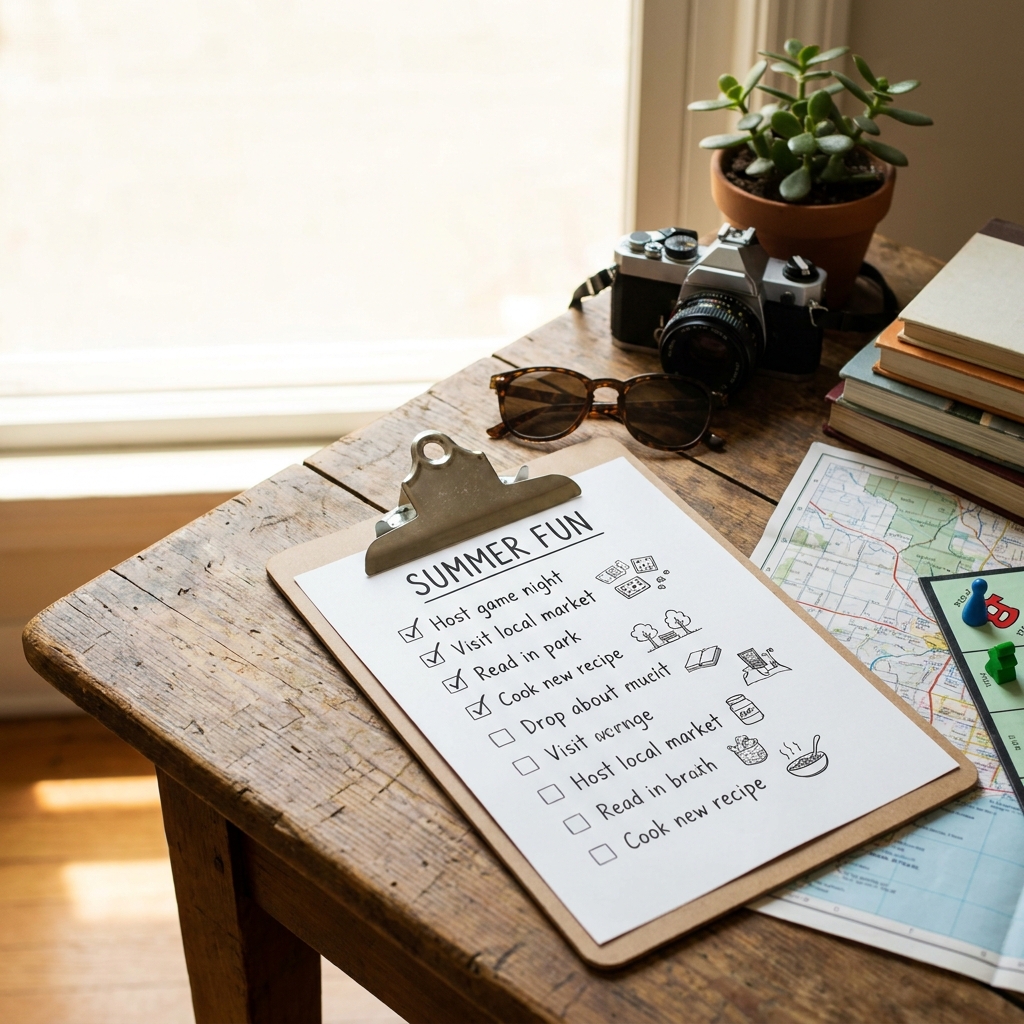 SUMMER FUN
Host game night
Visit local market
Read in park
Cook new recipe
Drop about mueiit
Visit
Host local market
Read in braith
Cook new recipe